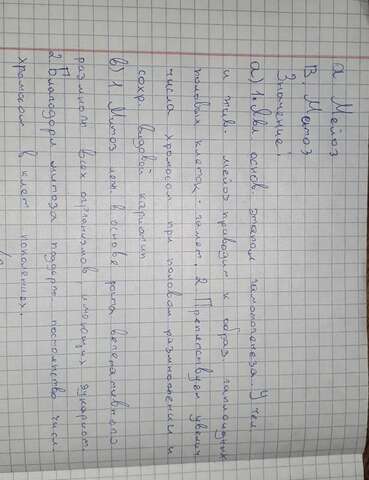 а Мейоз
В. Митоз
Значение:
а) 1. Явл основ. этапом гаметогенеза. У чел
и жив. мейоз приводит к образ. гаплоидных
половых клеток - гамет. 2 Препятствует увелич
числа хромосом при половом размножении и
сохр видовой кариотип
в) 1 Митоз леж. в основе роста вегетативного
размнож всех организмов, имеющих эукариот.
2 Благодаря митоза поддерж постоянство числ.
хромосом в клет поколениях.